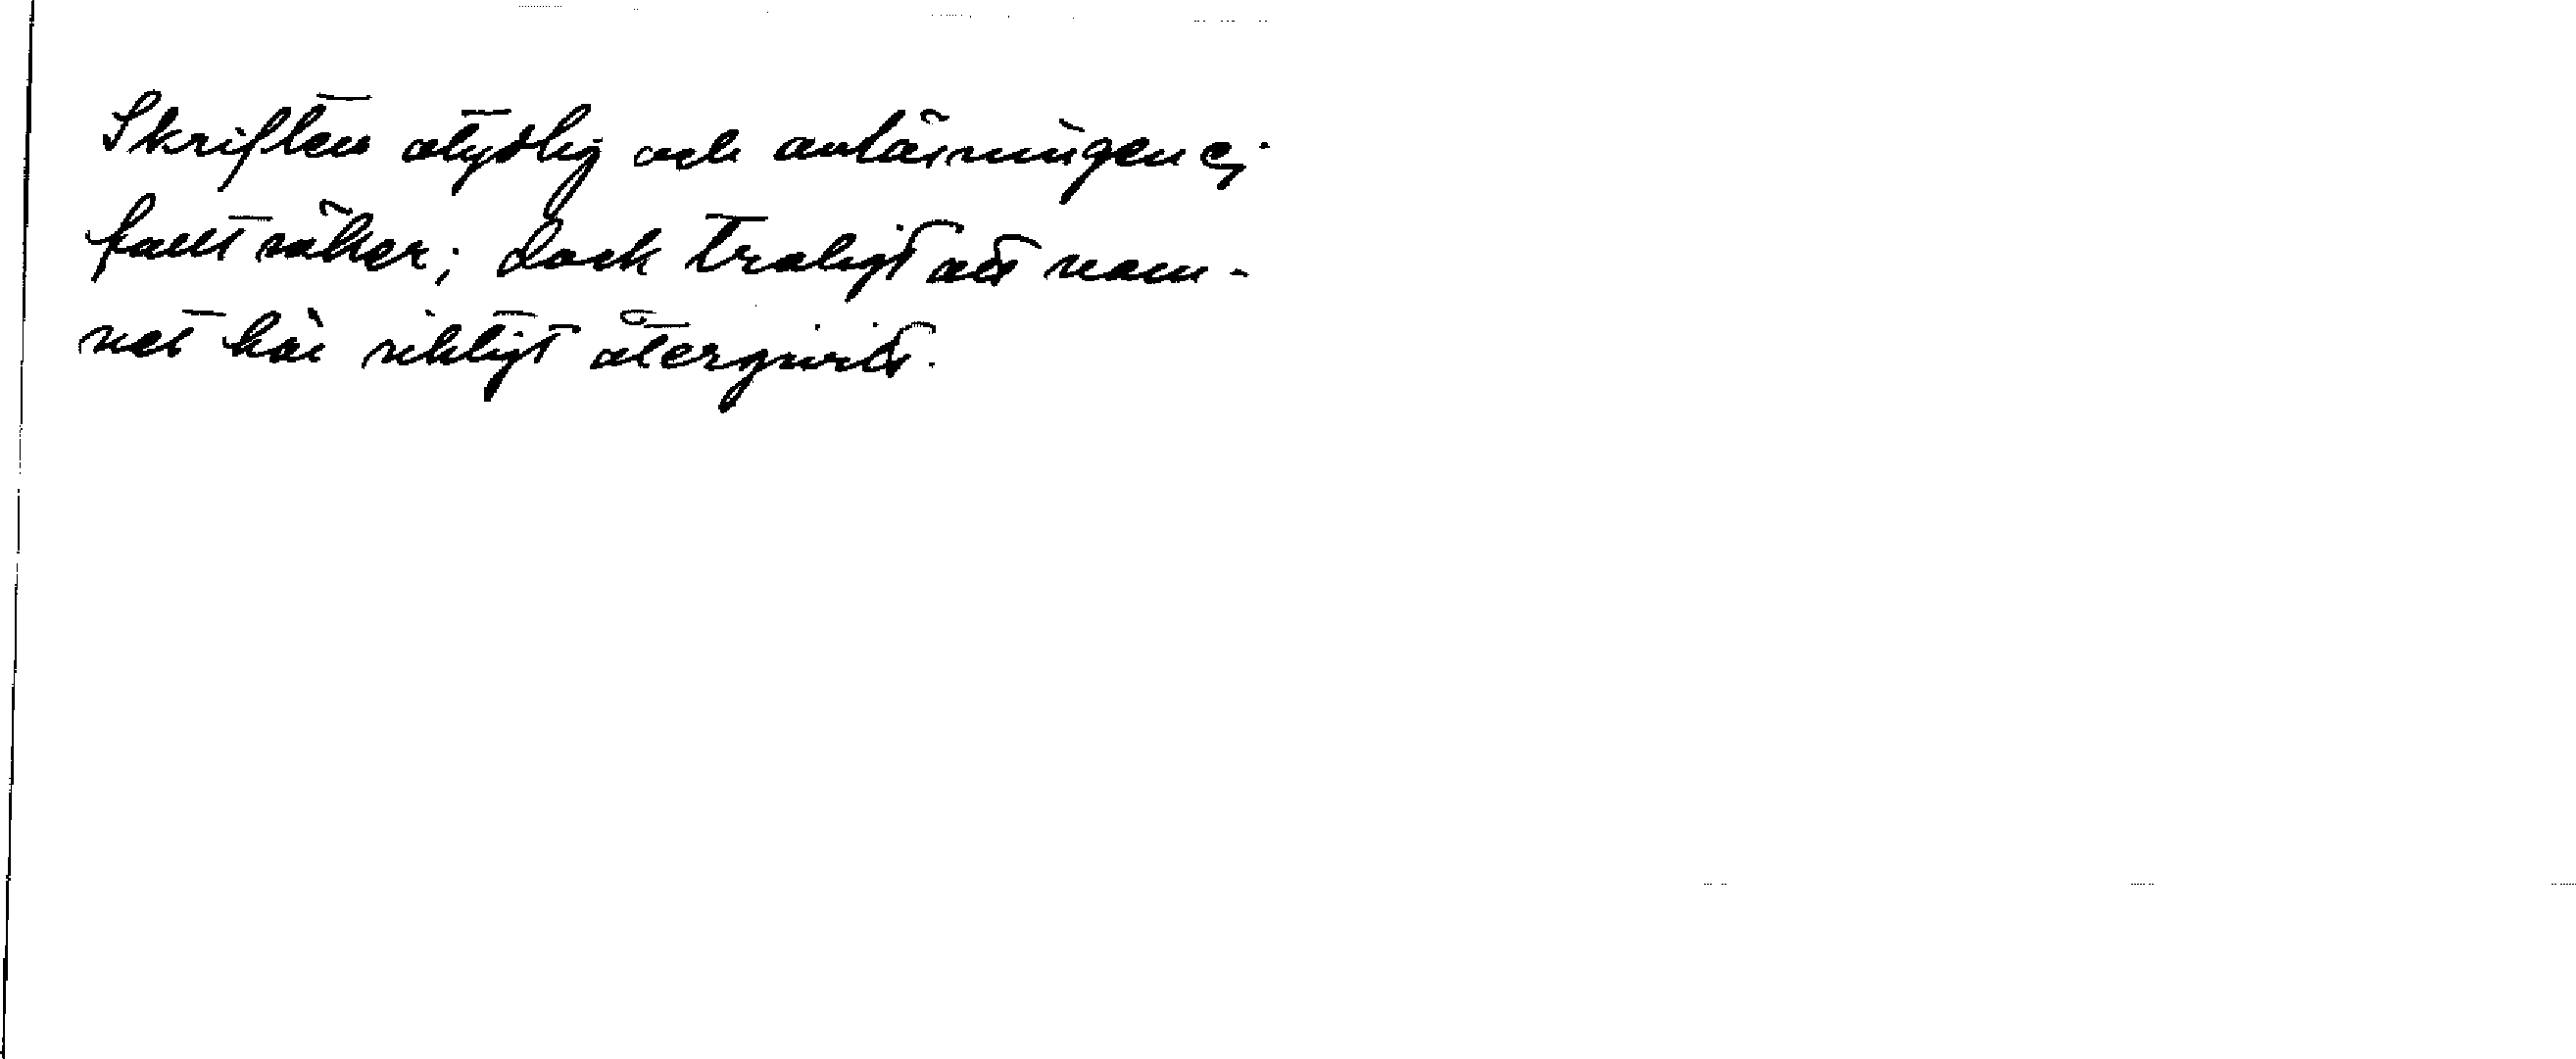 Skriften otydlig och avläsningen ej
fullt säker; dock troligt att nam-
net här riktigt återgivits.